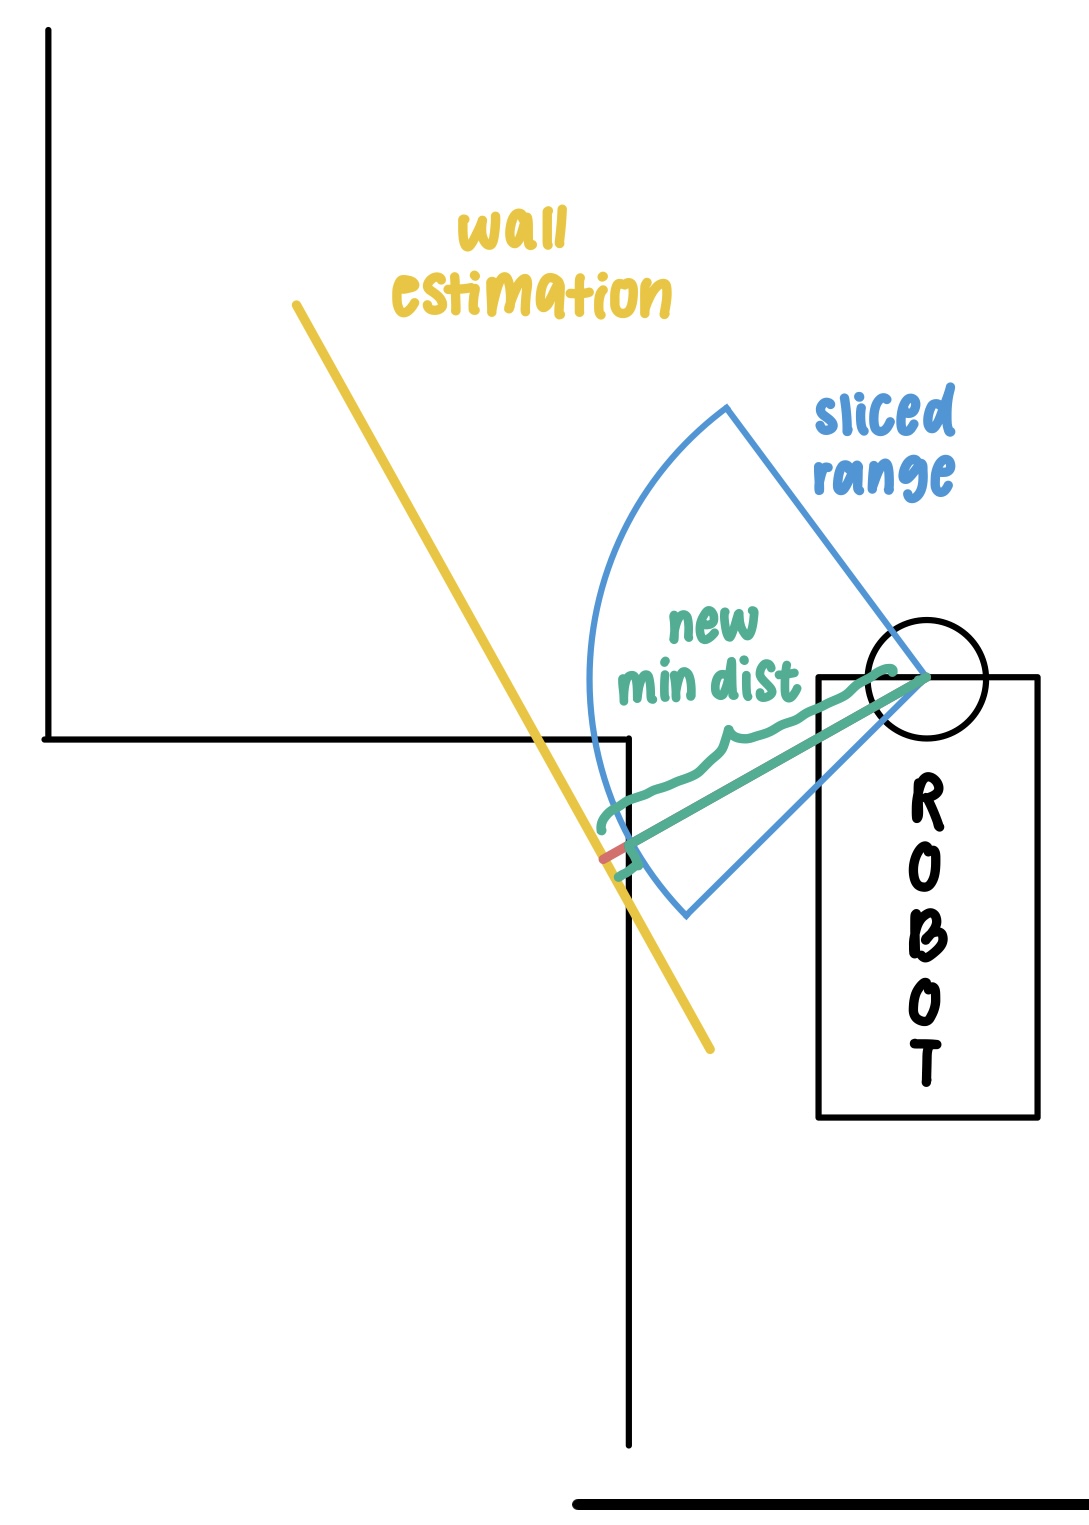 wall
estimation
sliced
range
new
min dist
ROBOT